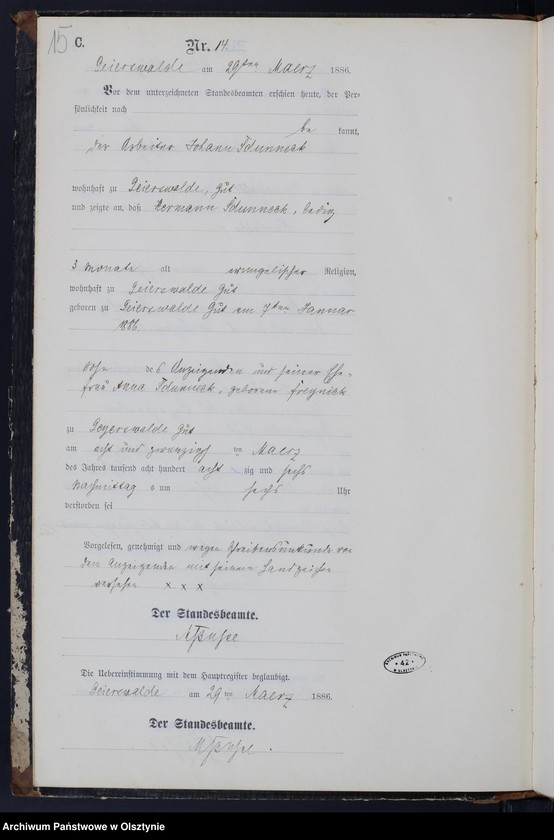 15 C. Nr. 14.
Geierswalde am 29ten Maerz 1886.
Vor dem unterzeichneten Standesbeamten erschien heute, der Per-
sönlichkeit nach
be kannt,
der Arbeiter Johann Sdunneck
wohnhaft zu Geierswalde, Gut
und zeigte an, daß Hermann Sdunneck, ledig
3 Monate alt evangelischer Religion,
wohnhaft zu Geierswalde Gut
geboren zu Geierswalde Gut am 7ten Januar
1886.
Sohn des Anzeigenden und seiner Ehe-
frau Anna Sdunneck, geborene
zu Geyerswalde Gut
am acht und zwanzigs ten Maerz
des Jahres tausend acht hundert acht zig und sechs
Nachmittag s um sechs Uhr
verstorben sei
Vorgelesen, genehmigt und wegen Schreibensunkunde von
dem Anzeigenden mit seinem Handzeichen
versehen x x x
Der Standesbeamte.
Die Uebereinstimmung mit dem Hauptregister beglaubigt.
Geierswalde am 29 ten Maerz 1886.
Der Standesbeamte.
42
Archiwum Państwowe w Olsztynie